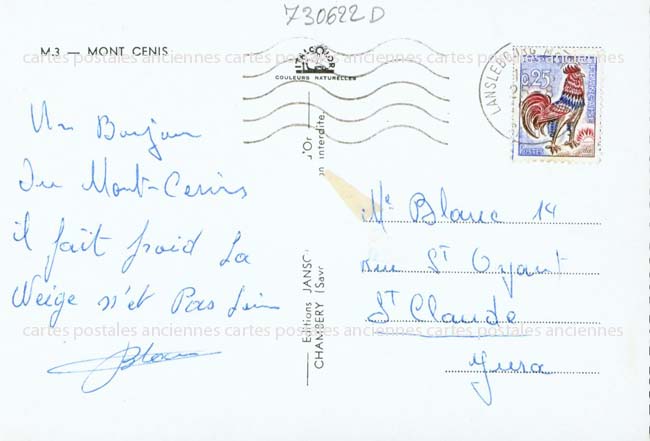 730622D
M.3 — MONT CENIS
COULEURS NATURELLES
LANSLEBOURG-MO
0,25
POSTES
Un Bonjour
Du Mont-Cenis
il fait froid La
Neige n'et Pas Loin
Blanc
d'Or
on interdite
Editions JANSO
CHAMBERY (Savo
Me Blanc 14
rue St Oyant
St Claude
Jura
cartes postales anciennes cartes postales anciennes cartes postales anciennes
cartes postales anciennes cartes postales anciennes cartes postales anciennes